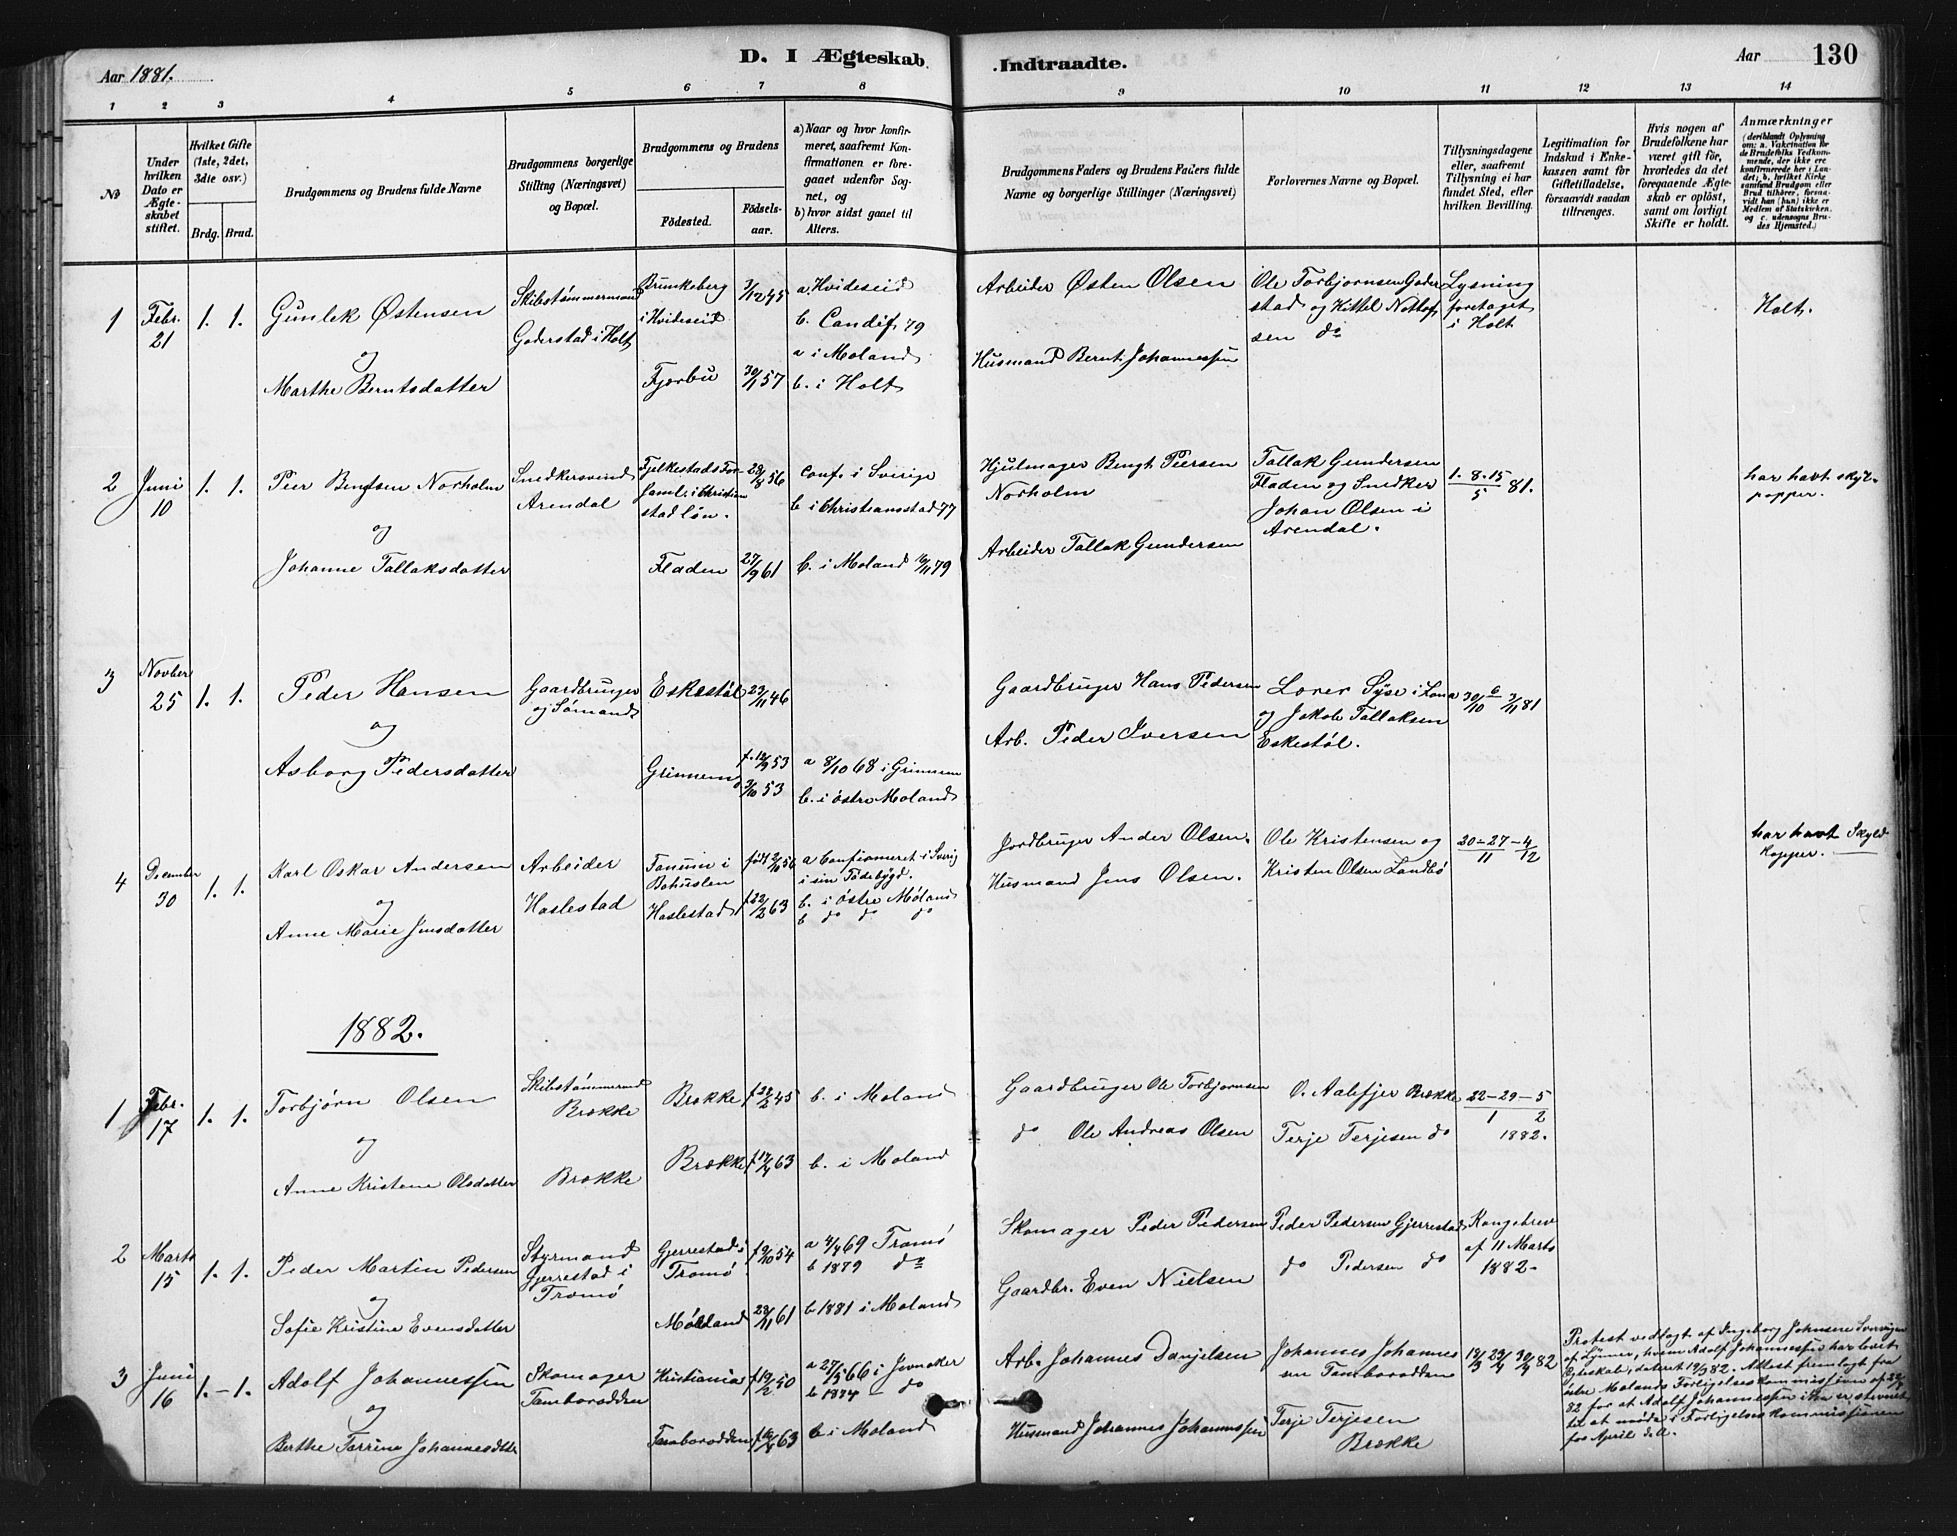 Aar 1881.
D. I Ægteskab
Indtraadte.
Aar
130
1 2 3 4 5 6 7 8 9 10 11 12 13 14
No
Under hvilken Dato er Ægteskabet stiftet.
Hvilket Gifte (1ste, 2det, 3die osv.)
Brdg. Brud.
Brudgommens og Brudens fulde Navne
Brudgommens borgerlige Stilling (Næringsvei) og Bopæl.
Brudgommens og Brudens
Födested.
Födselsaar.
a) Naar og hvor konfirmeret, saafremt Konfirmationen er foregaaet udenfor Sognet, og
b) hvor sidst gaaet til Alters.
Brudgommens Faders og Brudens Faders fulde Navne og borgerlige Stillinger (Næringsvei)
Forlovernes Navne og Bopæl.
Tillysningsdagene eller, saafremt Tillysning ei har fundet Sted, efter hvilken Bevilling.
Legitimation for Indskud i Enkekassen samt for Giftetilladelse, forsaavidt saadan tiltrænges.
Hvis nogen af Brudefolkene har været gift för, hvorledes da det foregaaende Ægteskab er oplöst, samt om lovligt Skifte er holdt.
Anmærkninger
(deriblandt Oplysning om: a. Vakcination for de Brudefolks Vedkommende, der ikke ere konfirmerede her i Landet; b. hvilket Kirkesamfund Brudgom eller Brud tilhörer, forsaavidt han (hun) ikke er Medlem af Statskirken, og c. udensogns Brudes Hjemsted.)
1 Febr. 21
1. 1.
Gunlek Østensen
og
Marthe Berntsdatter
Skibstømmermand
Goderstad i Holt
Brunkeberg
i Hvideseid
Fjærbu
3/12 45
30/1 57
a. Hvideseid
b. Landif. 79
a i Moland
b. i Holt
Arbeider Østen Olsen
Husmand Bernt Johannessen
Ole Torbjornsen Goderstad og Kittel Nottofsen do
Lysning
foretaget
i Holt
Holt.
2 Juni 10
1. 1.
Peer Bengtsen Norholm
og
Johanne Tallaksdatter
Snedkersvend
Arendal
Fjelkestads Forsaml. i Christianstad Lön.
Fladen
28/8 56
27/9 61
Conf. i Sverige
b i Christiansstad 77
b. i Moland 16/11 79
Hjulmager Bengt Peersen
Norholm
Arbeider Tallak Gundersen
Tallak Gundersen
Fladen og Snedker
Johan Olsen i
Arendal.
1. 8. 15/5 81.
har havt skyl-
popper.
3 Novber 25
1. 1.
Peder Hansen
og
Asborg Pedersdatter
Gaardbruger
og Sømand
Eskestøl
Grinnem
23/11 46
f. 12/9 53
2/10 53
a 8/10 68 i Grinnem
b. i østre Moland
Gaardbruger Hans Pedersen
Arb. Peder Iversen
og Jakob Tallaksen
Eskestøl.
30/10 6 3/11 81
4 December 30
1. 1.
Karl Oskar Andersen
og
Anne Marie Jensdatter
Arbeider
Haslestad
Tanum i
Bohuslen
Haslestad
f 22/2 63
a Confirmeret i Sverig
i sin Fødebygd.
b. i østre Moland
b do do do
Jordbruger Ander Olsen.
Husmand Jens Olsen.
Ole Kristensen og
Kristen Olsen Landbø
20-27-4
11 12
har havt Skyld-
kopper.
1882.
1 Febr. 17
1. 1.
Torbjørn Olsen
og
Anne Kristene Olsdatter
Skibstømmermd
Brække
Brække
Brække f 22/2 45
Brække f 17/4 63
b. i Moland
b. i Moland
Gaardbruger Ole Torbjornsen
do Ole Andreas Olsen
O. Aalefjer Brække
Terje Terjesen do
22-29-5
1 2
1882.
2 Marts 15
1. 1.
Peder Martin Pedersen
og
Sofie Kristine Evensdatter
Styrmand
Gjerrestad i
Tromø
Gjerrestad i
Tromø
Molland
f 9/10 54
23/11 61
a 4/4 69 Tromø
b 1879 do
b 1881 i Moland
Skomager Peder Pedersen
Gaardbr. Even Nielsen
Peder Pedersen Gjerrestad
do Pedersen do
Kongebrev
af 11 Marts
1882.
3 Juni 16
1. - 1.
Adolf Johannessen
og
Berthe Torrine Johannesdtter
Skomager
Tamborodden
Kristiania
Tamborodden
f 19/2 50
f 16/4 63
a 27/5 66 i Jevnaker
b 1874 - do
b i Moland
Arb. Johannes Danjelsen
Husmand Johannes Johannessen
Johannes Johannes
sen Tamborodden
Terje Terjesen
Brække
19/3 23/4 30/4 82
Protest vedtagt af Ingeborg Johnsene
af Lynner, hvem Adolf Johannessen har lovet
Egteskab, dateret 19/3 82. Attest fremlagt fra
østre Molands Forligelseskommission af
82 for at Adolf Johannessen ikke er stevnet
til at møde i Forligelseskommissionen
for April d.A.